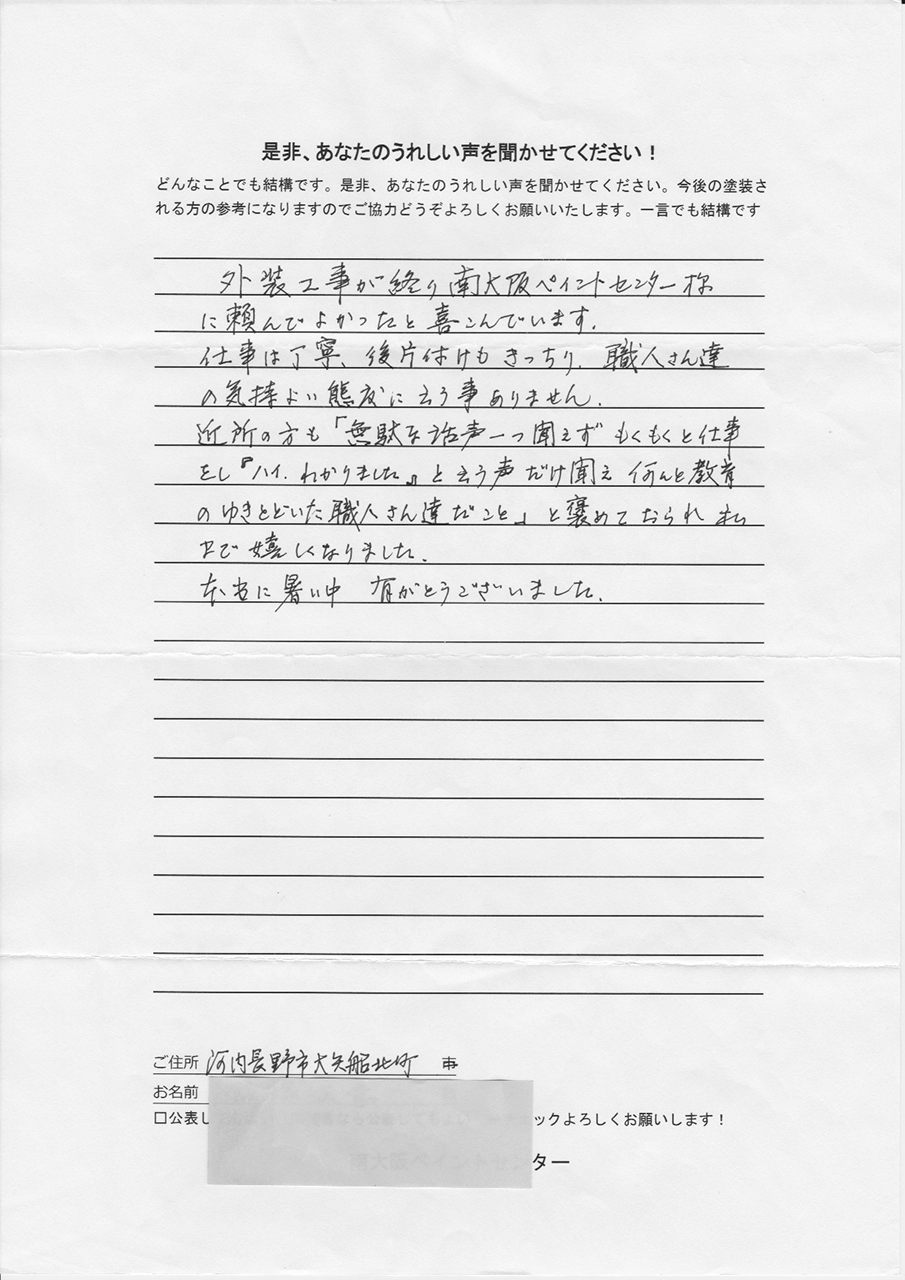 是非、あなたのうれしい声を聞かせてください！
どんなことでも結構です。是非、あなたのうれしい声を聞かせてください。今後の塗装さ
れる方の参考になりますのでご協力どうぞよろしくお願いいたします。一言でも結構です
外装工事が終り南大阪ペイントセンター様
に頼んでよかったと喜こんでいます。
仕事は丁寧、後片付けもきっちり、職人さん達
の気持よい態度に云う事ありません。
近所の方も「無駄な話声一つ聞えず もくもくと仕事
をし『ハイ、わかりました』と云う声だけ聞え 何んと教育
のゆきとどいた職人さん達だこと」と褒めておられ 私
まで嬉しくなりました。
本当に暑い中 有がとうございました。
ご住所 河内長野市大矢船北町 市
お名前
□公表し ェックよろしくお願いします！
南大阪ペイントセンター